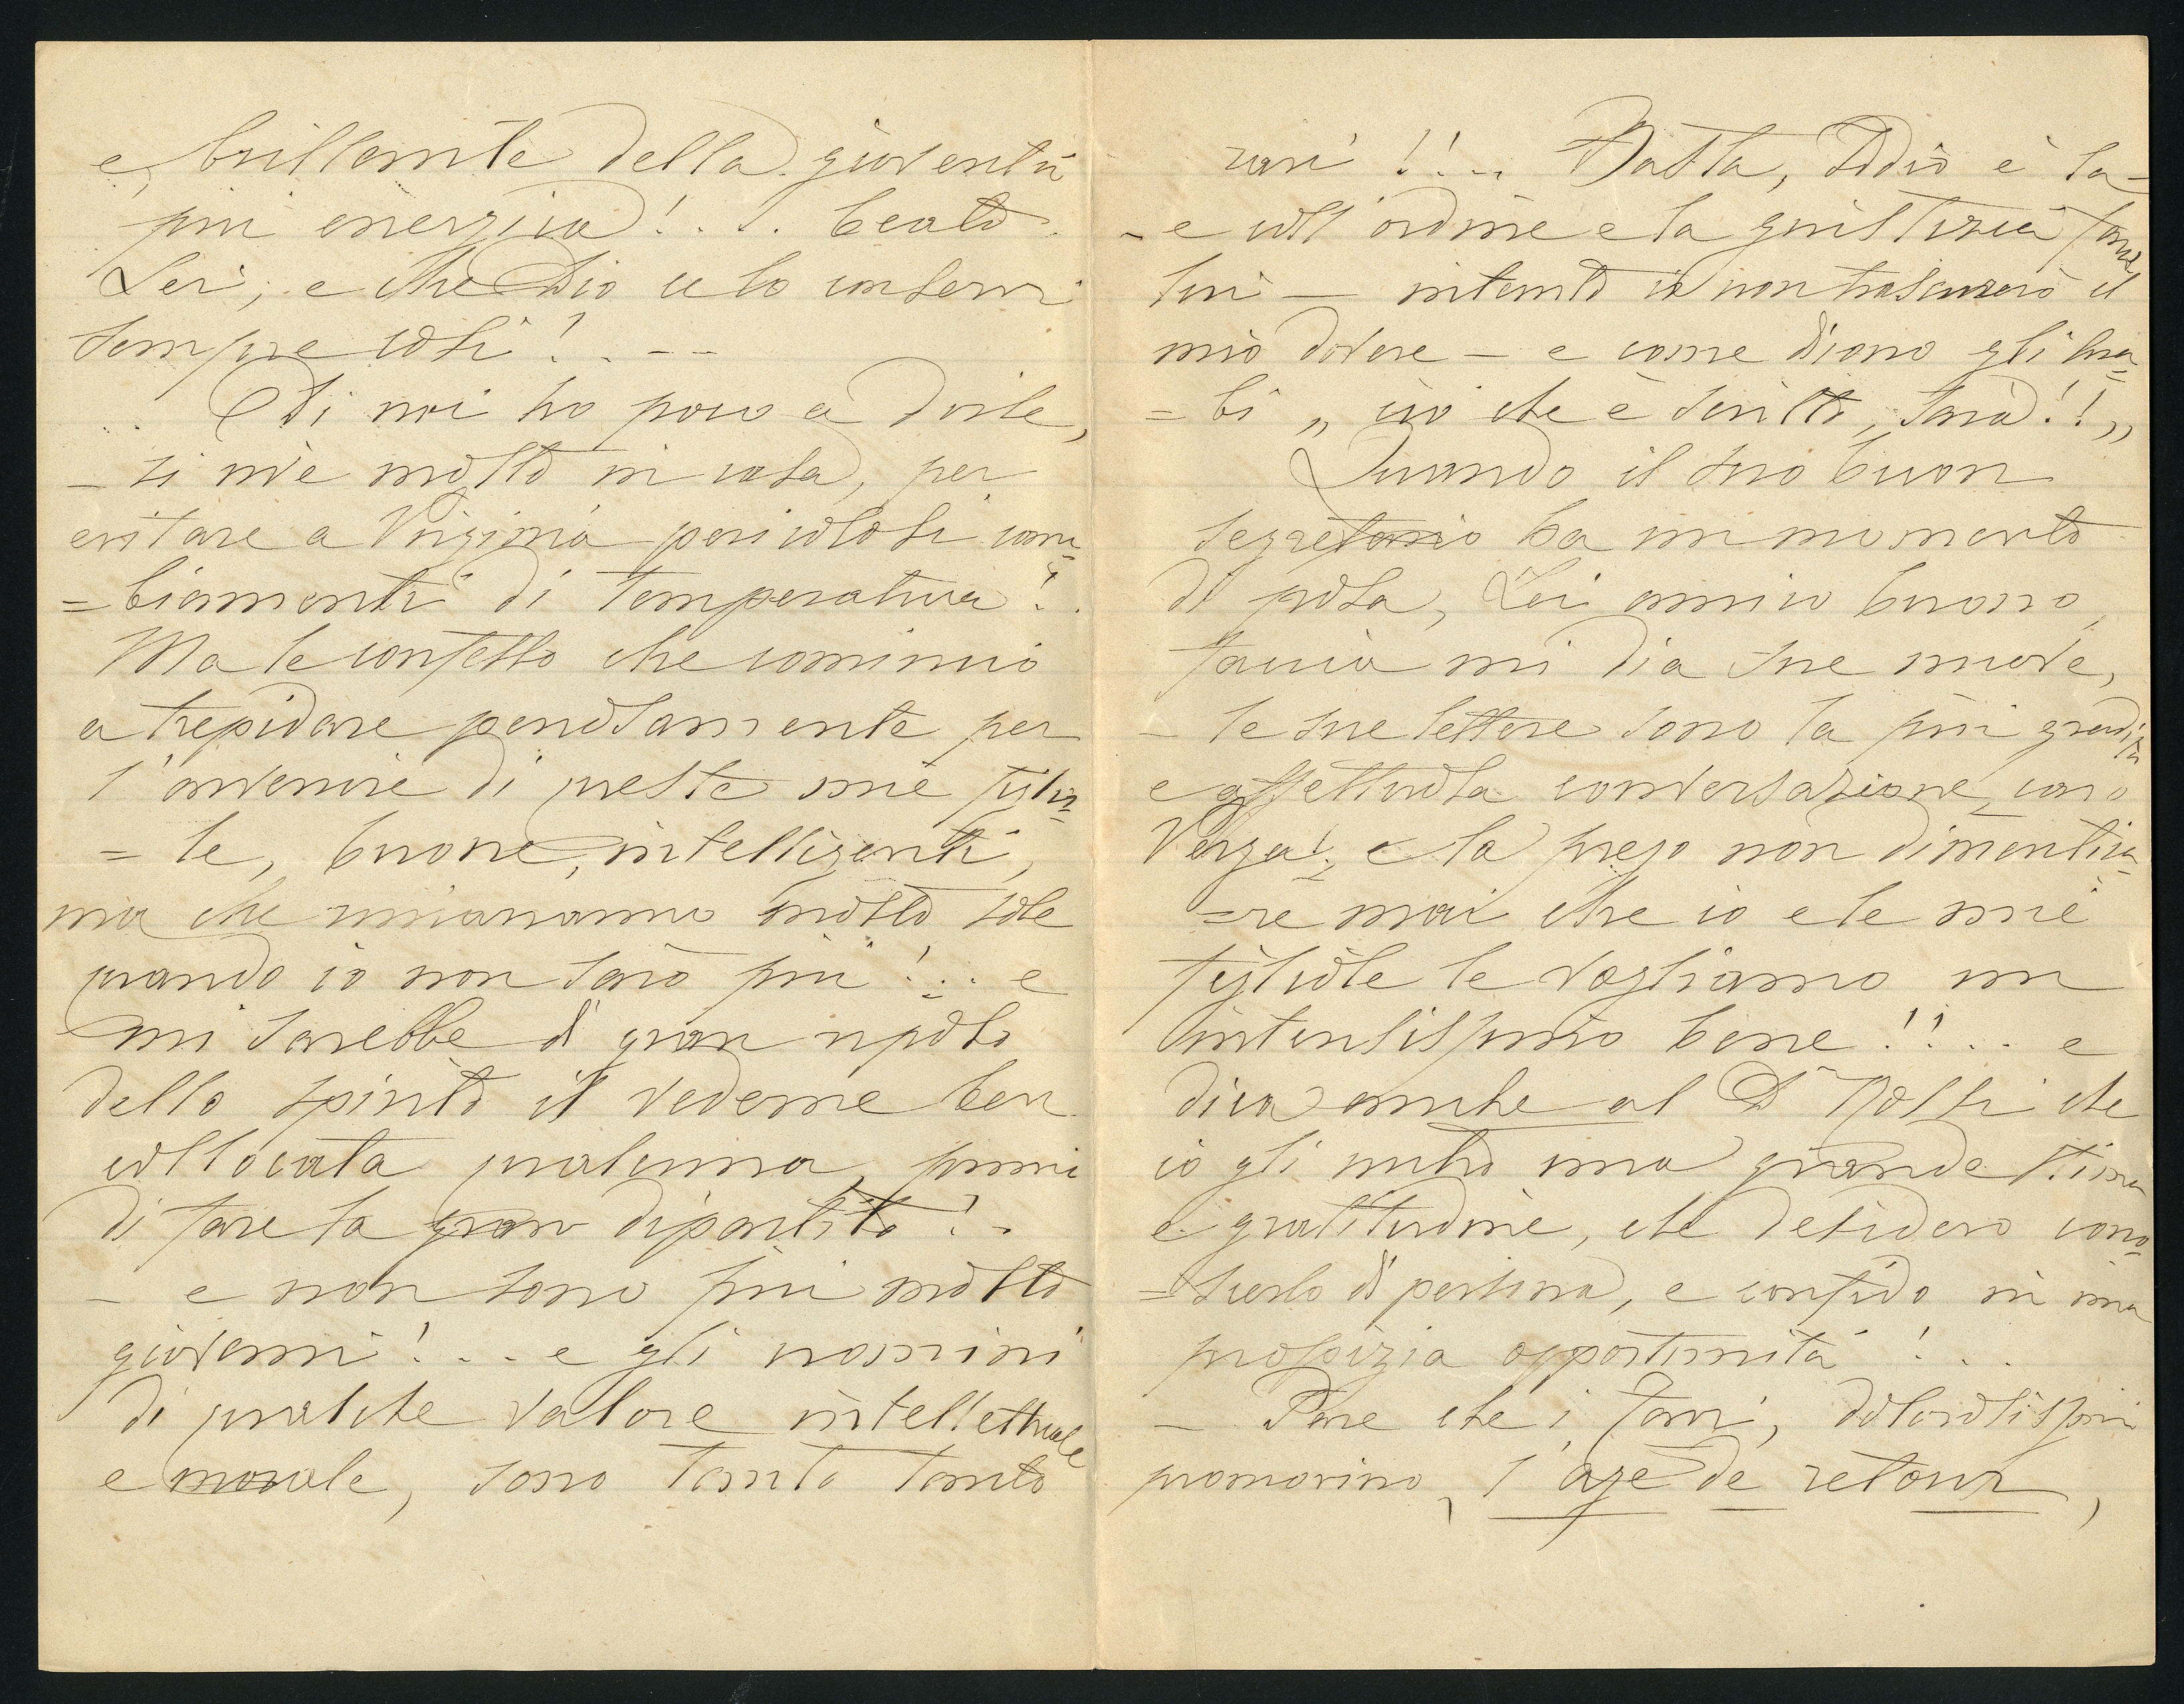 e brillante della gioventù
più energica! . . . beato
Lei, e che Dio ce lo conservi
sempre così! . . --
Di noi ho poco a dirle,
- si vive molto in casa, per
evitare a Virginia pericolosi cam=
=biamenti di temperatura!.
Ma le confesso che comincio
a trepidare penosamente per
l'avvenire di queste mie figlio=
=le, buone, intelligenti,
ma che rimarranno molto sole
quando io non sarò più! . . . e
mi sarebbe di gran riposo
dello spirito il vederne ben
collocata qualcuna, prima
di fare la gran dipartita! -
- e non sono più molto
giovani! . . . e gli uomini
di qualche valore intellettuale
e morale, sono tanto tanto
rari!! . . . Basta, Iddio è la-
- e coll'ordine e la giustizia
- intanto io non trascurerò il
mio dovere - e come dicono gli Ara=
=bi „ ciò che è scritto, sarà!! „
Quando il suo buon
segretario ha un momento
di posa, Lei amico buono,
faccia mi dia sue nuove,
- le sue lettere sono la più gradita
e affettuosa conversazione, caro
Verza!, e la prego non dimentica=
=re mai che io e le mie
figliole le vogliamo un
intensissimo bene!! . . . e
dica anche al Dr Rossi che
io gli nutro una grande stima
e gratitudine, che desidero cono=
=scerlo di persona, e confido in una
propizia opportunità! . . .
- Pare che i dolorosissimi
promovino, l'age de retour,